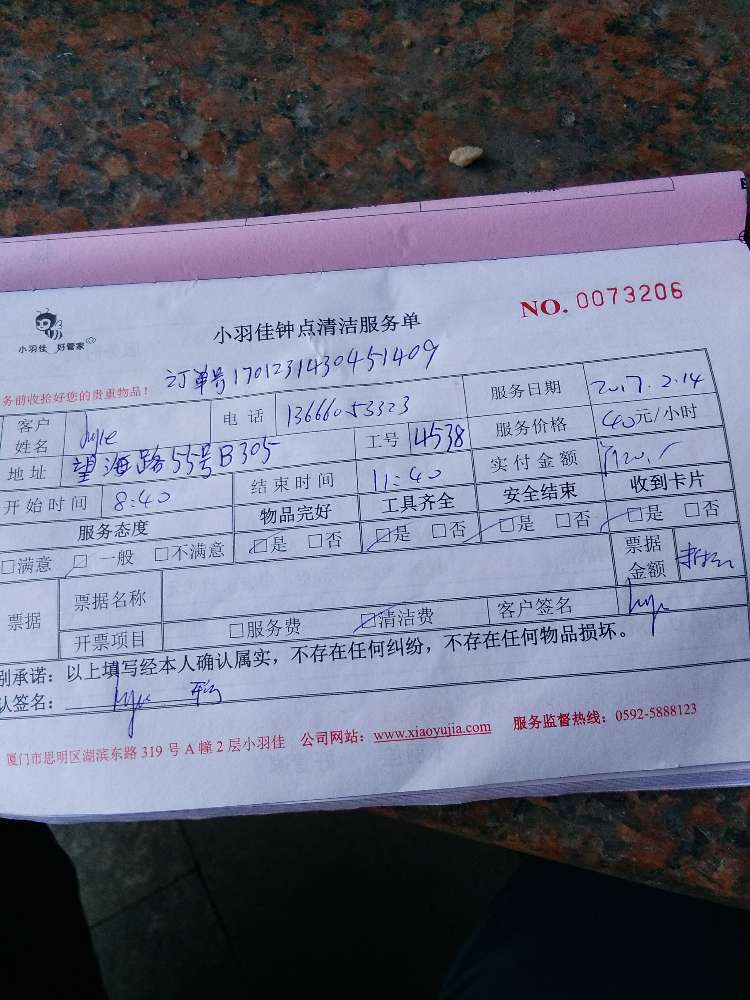 小羽佳 好管家
小羽佳钟点清洁服务单
NO. 0073206
务前收拾好您的贵重物品!
订单号1701231430451409
客户姓名
电话 13666053323
服务日期 2017.2.14
地址 望海路55号B305
工号 4538
服务价格 40元/小时
开始时间 8:40
结束时间 11:40
实付金额 ¥120
服务态度 物品完好 工具齐全 安全结束 收到卡片
□满意 □一般 □不满意 □是 □否 □是 □否 □是 □否 □是 □否
票据 票据名称 票据金额
开票项目 □服务费 □清洁费 客户签名
别承诺:以上填写经本人确认属实,不存在任何纠纷,不存在任何物品损坏。
认签名:
厦门市思明区湖滨东路 319 号 A 幢 2 层小羽佳 公司网站:www.xiaoyujia.com 服务监督热线:0592-5888123